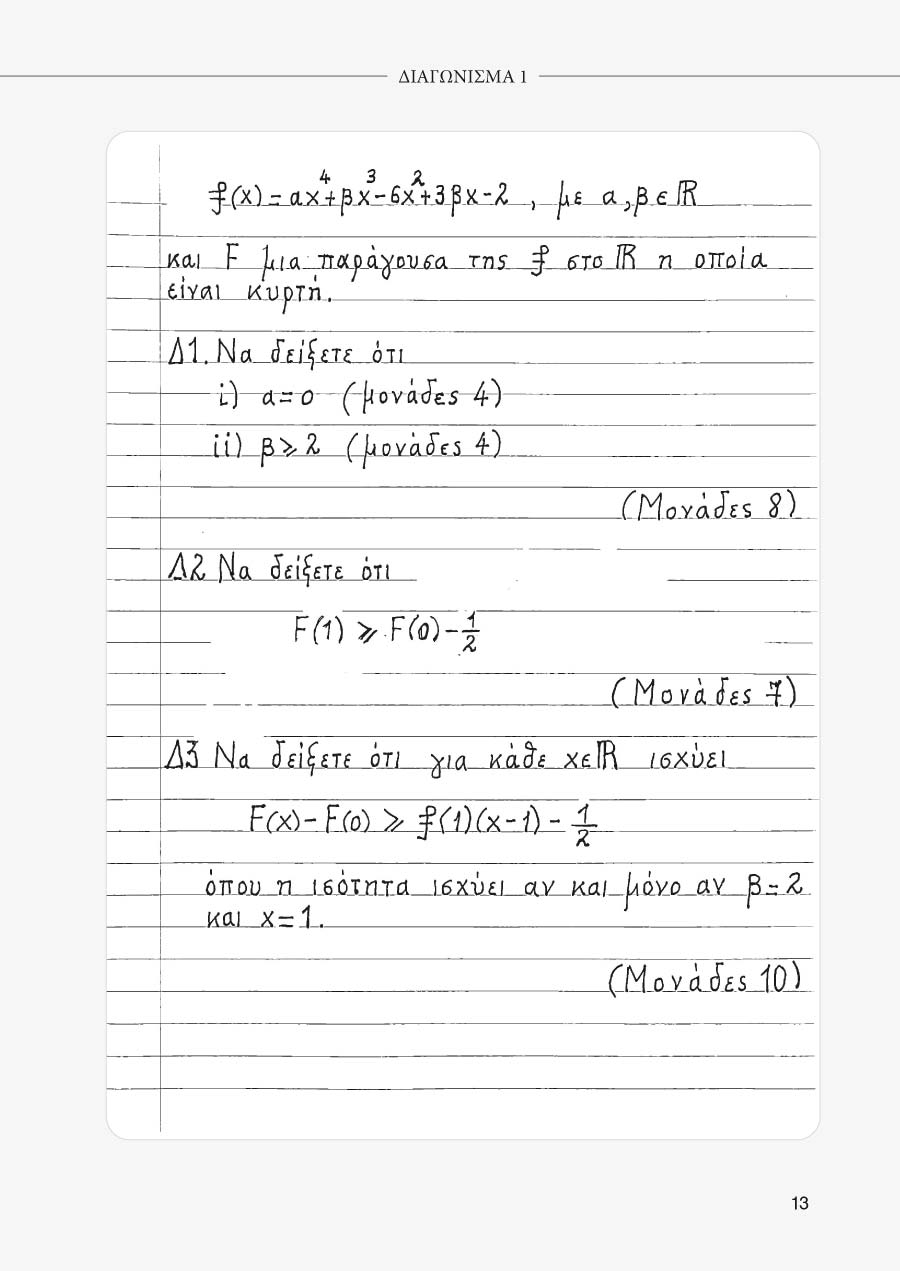 ΔΙΑΓΩΝΙΣΜΑ 1
f(x) = αx⁴+βx³-6x²+3βx-2 , με α,β∈ℝ
και F μια παράγουσα της f στο ℝ η οποία
είναι κυρτή.
Δ1. Να δείξετε ότι
i) α=0 (μονάδες 4)
ii) β⩾2 (μονάδες 4)
(Μονάδες 8)
Δ2 Να δείξετε ότι
F(1) ⩾ F(0)-1/2
(Μονάδες 7)
Δ3 Να δείξετε ότι για κάθε x∈ℝ ισχύει
F(x)-F(0) ⩾ f(1)(x-1)-1/2
όπου η ισότητα ισχύει αν και μόνο αν β=2
και x=1.
(Μονάδες 10)
13